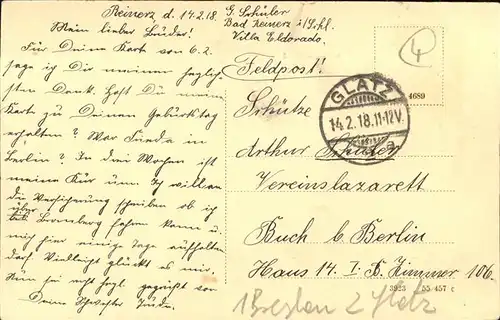 Reinerz, d. 14.2.18.
Mein lieber Bruder!
Für Deine Karte vom 6.2.
sage ich Dir meinen herzlich-
sten Dank. Hast Du meine
Karte zu Deinem Geburtstag
erhalten? War Frieda in
Berlin? In drei Wochen ist
meine Kur um. Ich will an
die Versicherung schreiben ob ich
über Bromberg fahren kann u.
mich hier einige Tage aufhalten
darf. Vielleicht glückt es mir.
Nun sei recht herzl. gegrüßt von
Deine Schwester
G. Schüler
Bad Reinerz i/Schl.
Villa Eldorado.
Feldpost!
GLATZ
14.2.18.11-12V.
a
4689
Schütze
Arthur Schüler
Vereinslazarett
Buch b. Berlin
Haus 14. I. Zimmer 106.
3923 55 457 c
2 Glatz